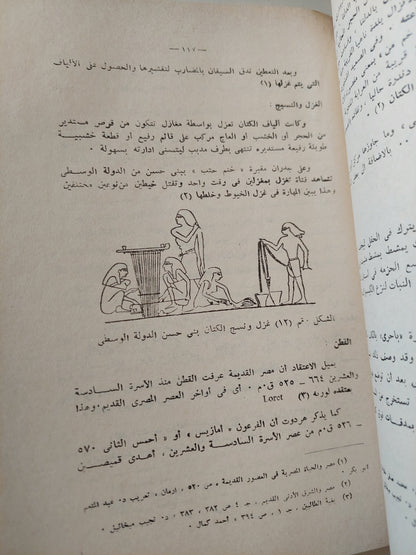 — ١١٧ —
وبعد التعطين تدق السيقان بالمضارب لتقشيرها والحصول على الألياف
التى يتم غزلها (١)
الغزل والنسيج :
وكانت ألياف الكتان تغزل بواسطة مغازل تتكون من قرص مستدير
من الحجر أو الخشب أو العاج مركب على قائم رفيع أو قطعة خشبية
طويلة رفيعة مستديره تنتهى بطرف مدبب ليتسنى ادارته بسهولة .
وعلى جدران مقبرة « خنم حتب » ببنى حسن من الدولة الوسطى
تشاهد فتاة تغزل بمغزلين فى وقت واحد وتفتل خيطين من نوعين مختلفين
وهذا يبين المهارة فى غزل الخيوط وخلطها (٢)
الشكل رقم (١٢) غزل ونسج الكتان بنى حسن الدولة الوسطى
القطن :
يميل الاعتقاد ان مصر القديمة عرفت القطن منذ الأسرة السادسة
والعشرين ٦٦٤ — ٥٢٥ ق٠م ٠ أى فى أواخر العصر المصرى القديم، وهذا
معتقده لوريه (٣) Loret
كما يذكر هردوت أن الفرعون « أمازيس » أو « أحمس الثانى ٥٧٠
— ٥٢٦ ق٠م من عصر الأسرة السادسة والعشرين ، أهدى قميصين
(١) مصر والحياة المصرية فى العصور القديمة ص ٥٢٠ ، ارمان ، تعريب د٠ عبد المنعم
أبو بكر .
(٢) مصر والشرق الأدنى القديم ، ج ٤ ص ٣٨٢ ، ٣٨٣ ، د٠ نجيب ميخائيل .
(٣) بغية الطالبين ، ج ١ ، ص ٣٦٤ ، أحمد كمال .